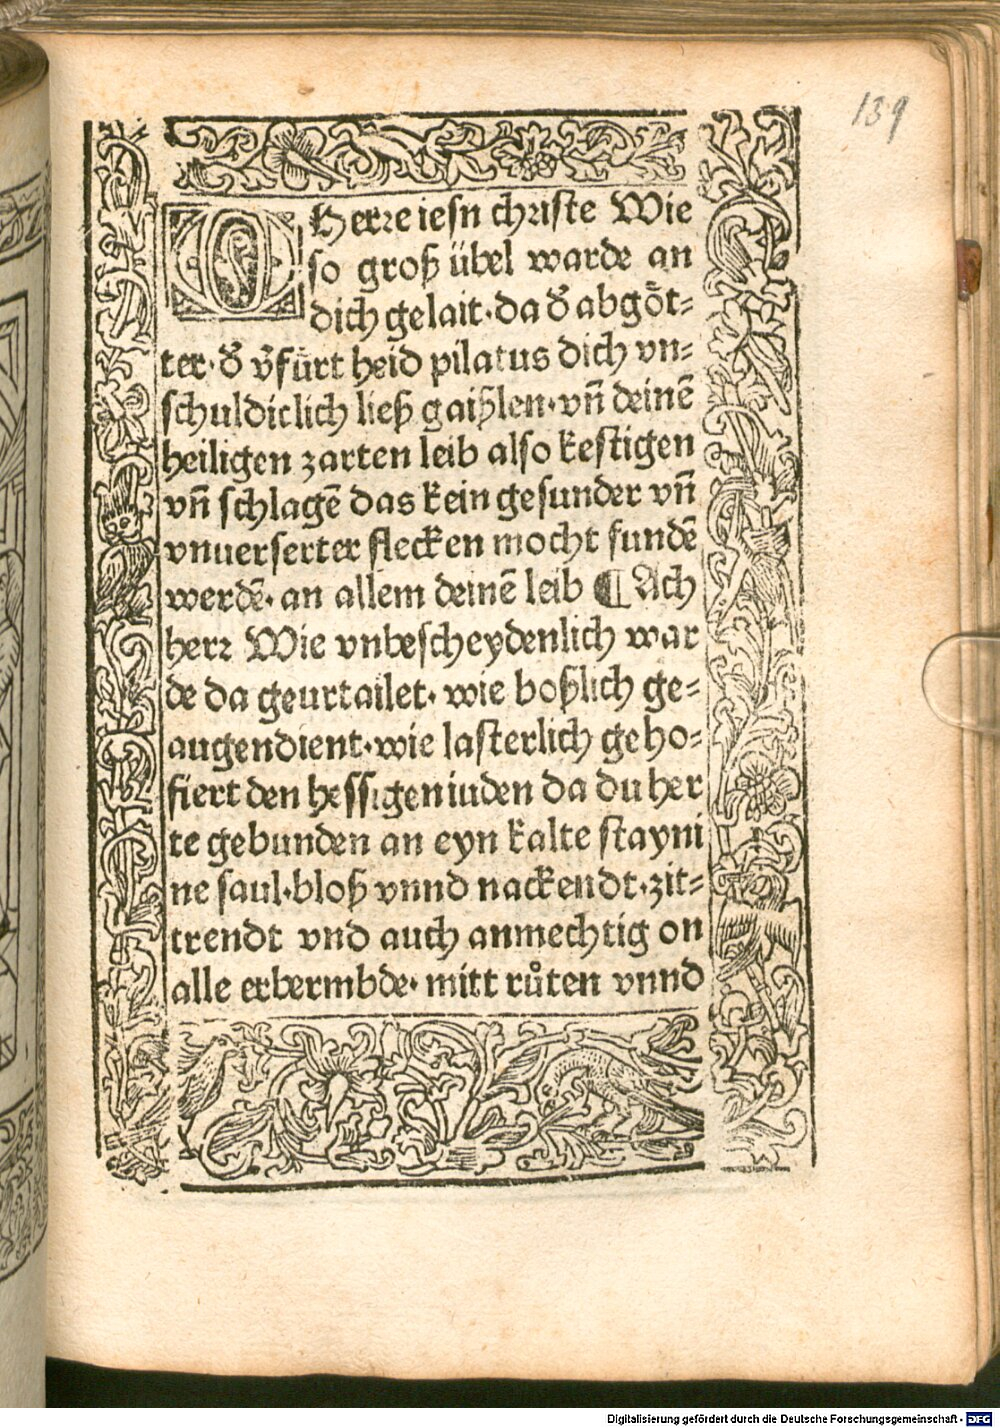 139
O Herre iesn christe Wie
so groß übel warde an
dich gelait·da d̄ abgöt⸗
ter·d̄ v̄fürt heid pilatus dich vn⸗
schuldiclich ließ gaißlen·vn̄ deinē
heiligen zarten leib also kestigen
vn̄ schlagē das kein gesunder vn̄
vnuerserter flecken mocht fundē
werdē·an allem deinē leib ¶ Ach
herr Wie vnbescheydenlich war
de da geurtailet·wie boßlich ge⸗
augendient·wie lasterlich geho⸗
fiert den hessigen iuden da du her
te gebunden an eyn kalte stayni
ne saul·bloß vnnd nackendt·zit⸗
trendt vnd auch anmechtig on
alle erbermbde·mitt růten vnnd
Digitalisierung gefördert durch die Deutsche Forschungsgemeinschaft - DFG